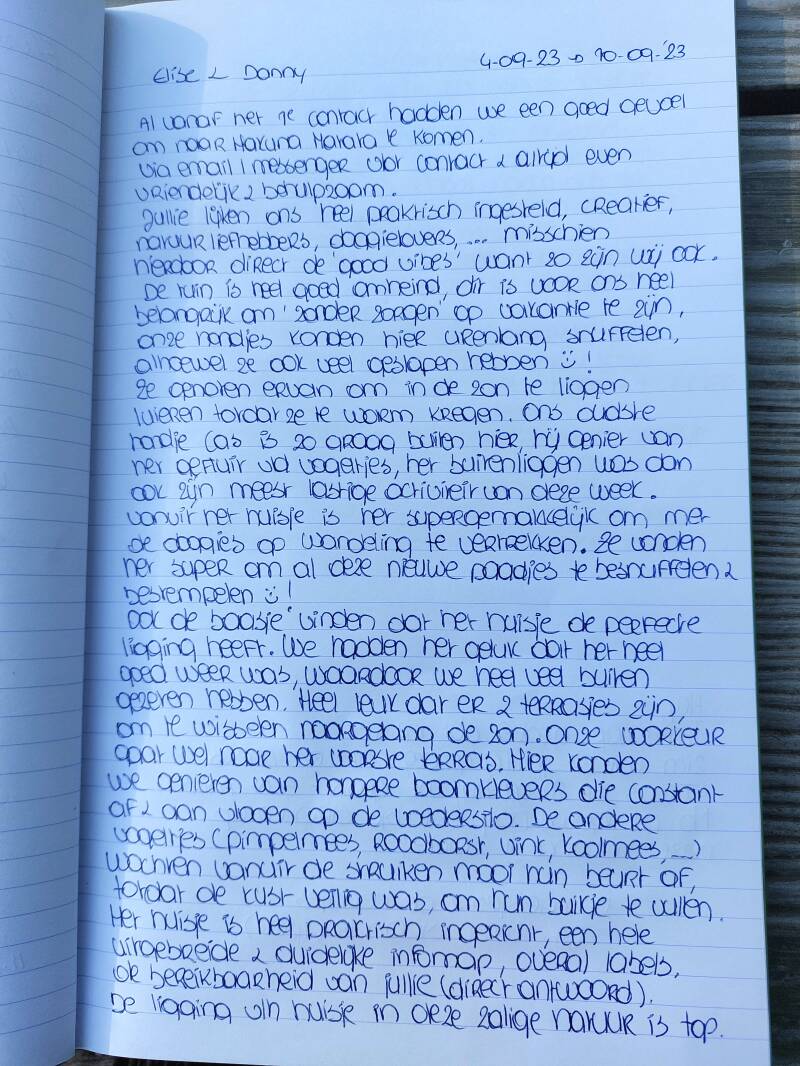 Elise & Danny
4-09-23 → 10-09-'23
Al vanaf het 1e contact hadden we een goed gevoel
om naar Hakuna Matata te komen.
Via email / messenger vlot contact & altijd even
vriendelijk & behulpzaam.
Jullie lijken ons heel praktisch ingesteld, creatief,
natuurliefhebbers, doggielovers, ... misschien
hierdoor direct de 'good vibes' want zo zijn wij ook.
De tuin is heel goed omheind, dit is voor ons heel
belangrijk om 'zonder zorgen' op vakantie te zijn,
onze hondjes konden hier urenlang snuffelen,
alhoewel ze ook veel geslapen hebben ☺!
Ze genoten ervan om in de zon te liggen
luieren totdat ze te warm kregen. Ons oudste
hondje Cas is zo graag buiten hier, hij geniet van
het gefluit vd vogeltjes, het buitenliggen was dan
ook zijn meest lastige activiteit van deze week.
Vanuit het huisje is het supergemakkelijk om met
de doggies op wandeling te vertrekken. Ze vonden
het super om al deze nieuwe paadjes te besnuffelen &
bestempelen ☺!
Ook de baasje' vinden dat het huisje de perfecte
ligging heeft. We hadden het geluk dat het heel
goed weer was, waardoor we heel veel buiten
gezeten hebben. Heel leuk dat er 2 terrasjes zijn,
om te wisselen naargelang de zon. Onze voorkeur
gaat wel naar het voorste terras. Hier konden
we genieten van hongere boomklevers die constant
af & aan vlogen op de voedersilo. De andere
vogeltjes (pimpelmees, roodborst, vink, koolmees, ...)
wachten vanuit de struiken mooi hun beurt af,
totdat de kust veilig was, om hun buikje te vullen.
Het huisje is heel praktisch ingericht, een hele
uitgebreide & duidelijke infomap, overal labels,
de bereikbaarheid van jullie (direct antwoord).
De ligging v/h huisje in deze zalige natuur is top.